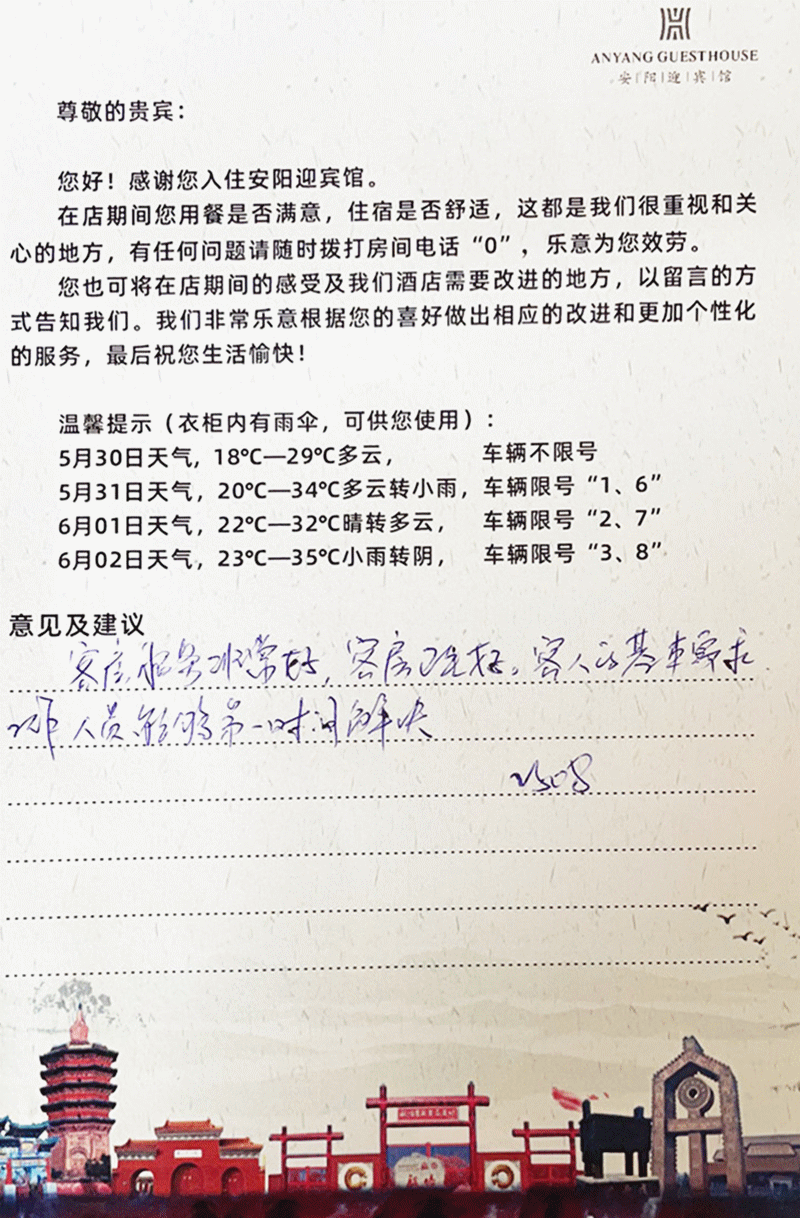 ANYANG GUESTHOUSE
安阳迎宾馆
尊敬的贵宾：
您好！感谢您入住安阳迎宾馆。
在店期间您用餐是否满意，住宿是否舒适，这都是我们很重视和关
心的地方，有任何问题请随时拨打房间电话“0”，乐意为您效劳。
您也可将在店期间的感受及我们酒店需要改进的地方，以留言的方
式告知我们。我们非常乐意根据您的喜好做出相应的改进和更加个性化
的服务，最后祝您生活愉快！
温馨提示（衣柜内有雨伞，可供您使用）：
5月30日天气，18℃—29℃多云， 车辆不限号
5月31日天气，20℃—34℃多云转小雨，车辆限号“1、6”
6月01日天气，22℃—32℃晴转多云， 车辆限号“2、7”
6月02日天气，23℃—35℃小雨转阴， 车辆限号“3、8”
意见及建议
客房服务非常好，客房卫生好。客人的基本要求
工作人员能够第一时间解决